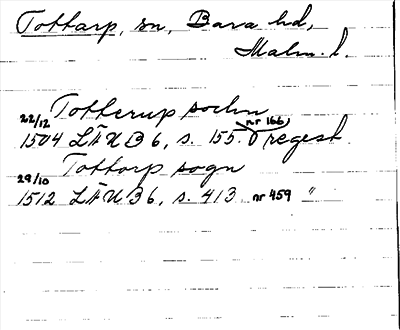 Tottarp, sn, Bara hd,
Malm. l.
Totterup sochn
22/12 1504 LÄU B 6, s. 155. nr 166, regest
Tottorp sogn
29/10 1512 LÄU B 6, s. 413 nr 459 "